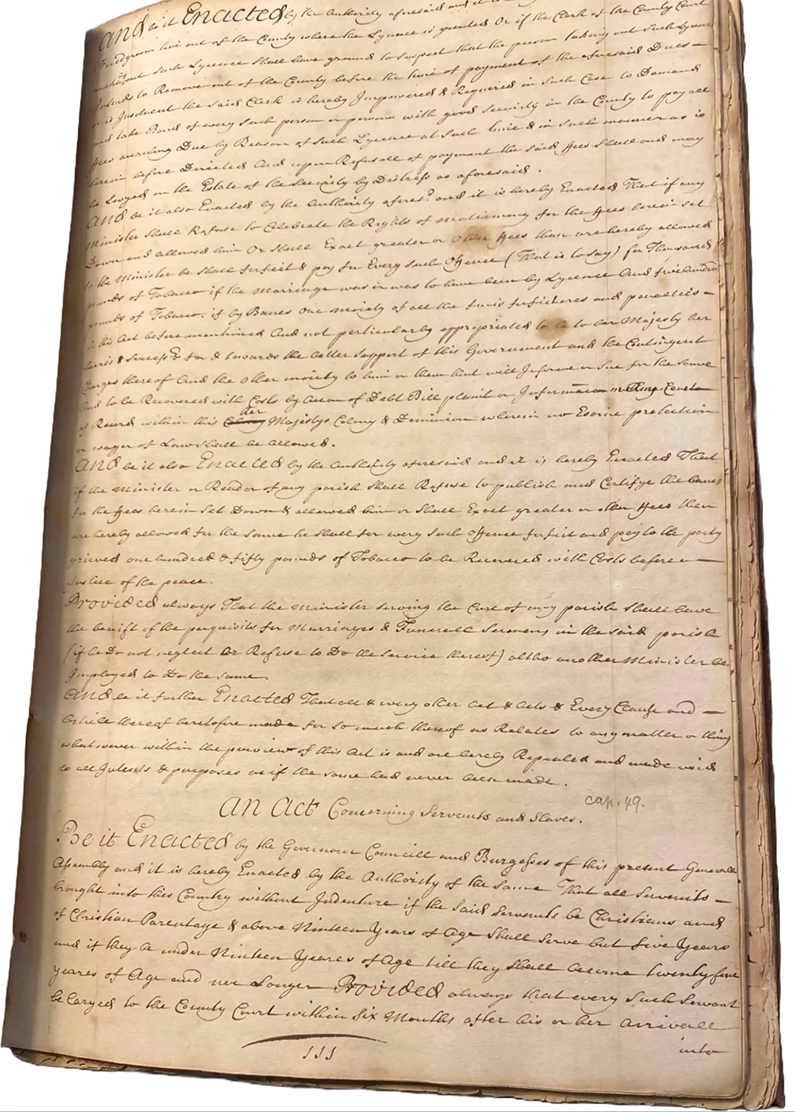 And be it Enacted by the Authority aforesaid and it is
live out of the County where the Lycence is granted Or if the Clerk of the County Court
such Lycence Shall have ground to Suspect that the person taking out Such Lycence
Intends to Remove out of the County before the time of payment of the aforesaid Dues
or is Insolvent the Said Clerk is hereby Impowered & Required in Such Case to Demand
and take Bond of every Such person or persons with good Security in the County to pay all
ffees accruing Due by Reason of Such Lycence at Such time & in Such manner as is
herein before Directed And upon Refusall of payment the said ffees Shall and may
be Levyed on the Estate of the Security by Distress as aforesaid.
And be it also Enacted by the Authority afores.d and it is hereby Enacted That if any
Minister Shall Refuse to Celebrate the Rights of Matrimony for the ffees herein Set
Down and allowed him Or Shall Exact greater or Other ffees than are hereby allowed
to the Minister he Shall forfeit & pay for Every Such Offence (That is to say) for Thousand
pounds of Tobacco if the Marriage was or was to have been by Lycence And five hundred
pounds of Tobacco; if by Banes One moiety of all the fines forfeitures and penalties
in this Act before mentioned And not particularly appropriated to be to her Majesty her
heirs & Success.rs for & towards the better Support of this Government and the Contingent
Charges thereof And the other moiety to him or them that will Inform or Sue for the Same
And to be Recovered with Costs by accon of Debt Bill plaint or Information in Any Court
of Record within this her Majestys Colony & Dominion wherein no Essoine protection
or wager of Law shall be allowed.
And be it also Enacted by the Authority aforesaid and it is hereby Enacted That
if the Minister or Reader of any parish Shall Refuse to publish and Certifye the banes
for the ffees herein Set Down & allowed him or Shall Exact greater or other ffees then
are hereby allowed for the same he shall for every Such Offence forfeit and pay to the party
grieved one hundred & fifty pounds of Tobacco to be Recovered with Costs before a
Justice of the peace.
Provided always That the Minister serving the Cure of any parish Shall have
the benifit of the perquisits for Marriages & Funerall Sermons in the said parish
(if he Do not neglect Or Refuse to Do the Service thereof) altho another Minister be
Imployed to Do the same.
And be it further Enacted That all & every other Act & Acts & Every Clause and
Article thereof heretofore made for so much thereof as Relates to any matter or thing
whatsoever within the purview of this Act is and are hereby Repealed and made void
to all Intents & purposes as if the same had never been made.
cap. 49.
An Act Concerning Servants and Slaves.
Be it Enacted by the Governour Councill and Burgesses of this present Generall
Assembly and it is hereby Enacted by the Authority of the Same That all Servants
brought into this Country without Indenture if the said Servants be Christians and
of Christian Parentage & above Nineteen Years of Age Shall Serve but five Years
and if they be under Nineteen Yeares of Age till they shall become twenty four
yeares of Age and no Longer Provided always that every Such Servant
be Carryed to the County Court within Six Months after his or her arrivall
into
111